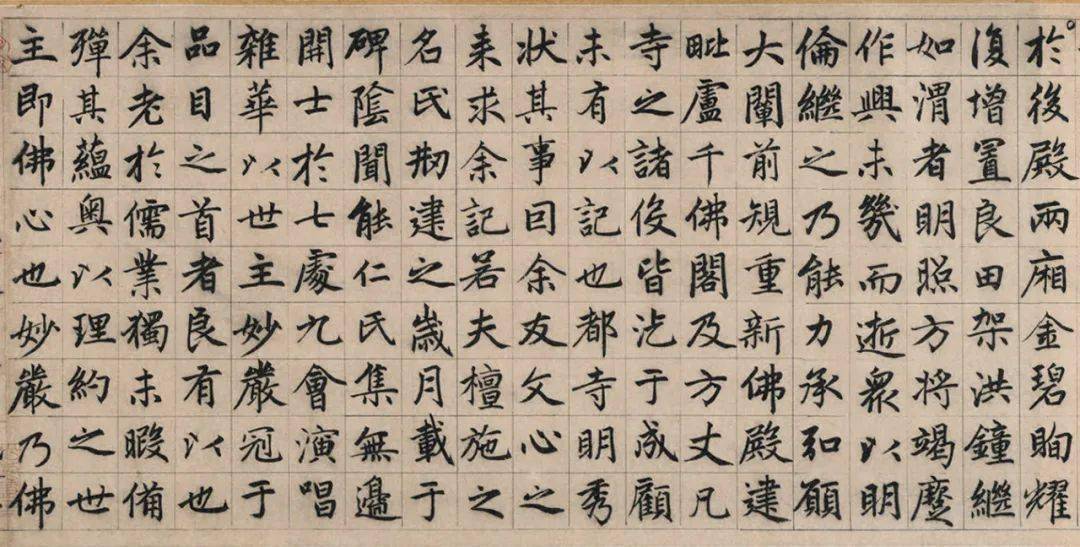 於後殿兩廂金碧眴耀
復增置良田架洪鐘繼
如渭者明照方將竭麼
作興未幾而逝衆以明
倫繼之乃能力承弘願
大闡前規重新佛殿建
毗盧千佛閣及方丈凡
寺之諸役皆汔于成顧
未有以記也都寺明秀
狀其事回余友文心之
来求余記若夫檀施之
名氏剏建之歲月載于
碑陰聞能仁氏集無邊
開士於七處九會演唱
雜華以世主妙嚴冠于
品目之首者良有以也
余老於儒業獨未暇備
殫其蘊奥以理約之世
主即佛心也妙嚴乃佛